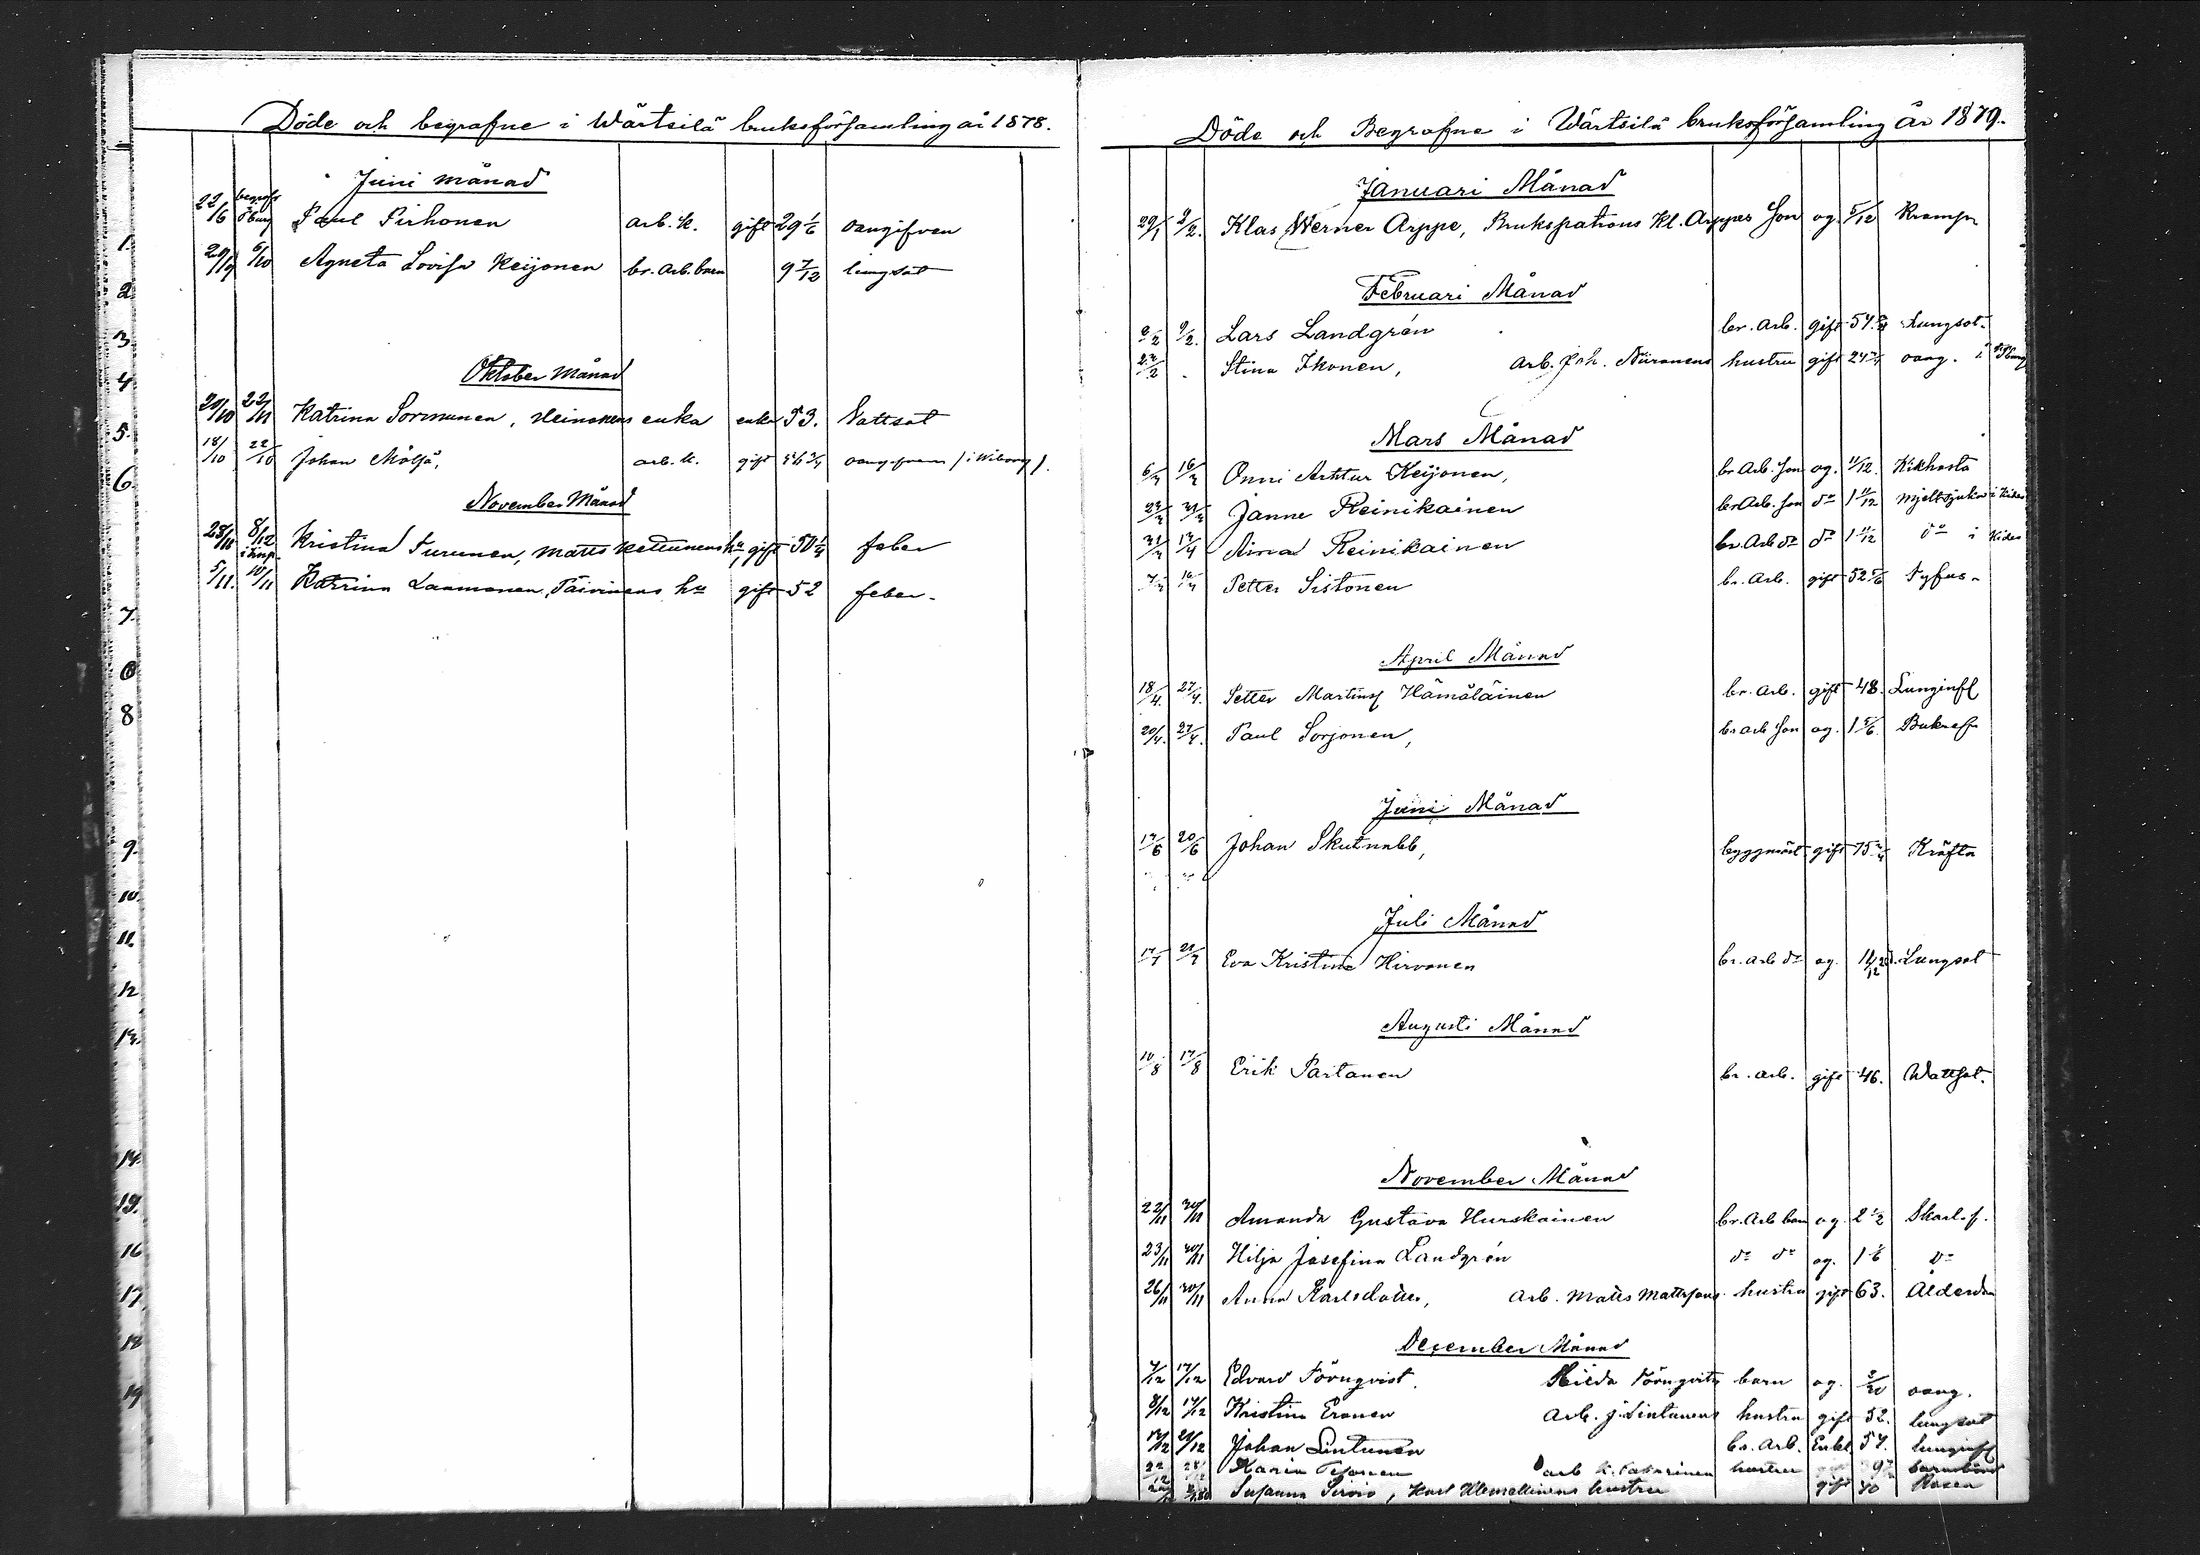 Döde och begrafne i Wärtsilä bruksförsamling år 1878.
Juni månad
22/6 begrafs Paul Pirhonen arb.k. gift 29 1/6 oangifven
20/9 6/10 Agneta Lovisa Keijonen br. arb. barn 9 7/12 lungsot
Oktober Månad
20/10 Katrina Sormunen, Heinonens enka enka 53. Vattsot
18/10 22/10 Johan Mölsä, arb. k. gift oangifven (i Wiborg).
November Månad
28/11 8/12 Kristina Turunen, Matts Kettunens hu, gift 50 1/4 feber
5/11. 10/11 Katrina Laamanen, Päivinens hu gift 52 feber.
Döde och Begrafne i Wärtsilä bruksförsamling År 1879.
Januari Månad
29/1 2/2. Klas Werner Arppe, Brukspatrons Kl. Arppes Son og. 5/12 Kramp
Februari Månad
2/2 9/2. Lars Landgrén br. arb. gift 54 Lungsot.
22/2 Stina Ikonen, Arb. Joh. Niiranens hustru gift 24 oang. i
Mars Månad
6/3 16/3 Onni Arthur Keijonen, br Arb. Son og. 11/12. Kikhosta
23/3 Janne Reinikainen br Arb. Son do 1 11/12 Mjeltsjuka i Kides
31/3 13/4 Aina Reinikainen br. Arb do do 1 11/12 do i Kides
Petter Sistonen br. Arb. gift 52 5/6 Tyfus
April Månad
18/4. 27/4. Petter Martinsf Hämäläinen br. arb. gift 48. Lunginfl
20/4. 27/4. Paul Sorjonen, br arb Son og. 1 5/6. Bukref
Juni Månad
17/6 20/6 Johan Skutnabb, byggmäst gift 75 Kräfta
Juli Månad
Eva Kristina Hirvonen br. arb do og. Lungsot
Augusti Månad
10/8 17/8 Erik Partanen br. arb. gift 46. Wattsot.
November Månad
22/11 30/11 Amanda Gustava Hurskainen br. Arb barn og. 2 1/2 Skarl. f.
23/11 30/11 Hilja Josefina Landgrén do do og. 1 1/6 do
26/11 30/11 Anna Karlsdotter, Arb. Matts Mattssons hustru gift 63. Ålderdom
December Månad
7/12 17/12 Edvard Törnqvist. Hilda Törnqvists barn og. oang.
8/12 14/12 Kristina Eronen Arb. J. Lintunens hustru gift 52. lungsot
17/12 21/12 Johan Lintunen br. Arb. Enkl. 54. lunginfl
22/12 28/12 Karin arb hustru barnsbörd
Susanna Sirviö, hustru gift 40 Rosen
1.
2.
3.
4.
5.
6.
7.
8
8
9.
10.
11.
12
13.
14.
15.
16
17.
18
19